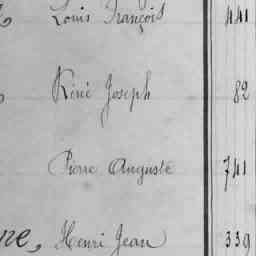 Louis François 441
Réné Joseph 82
Pierre Auguste 741
ne, Henri Jean 339